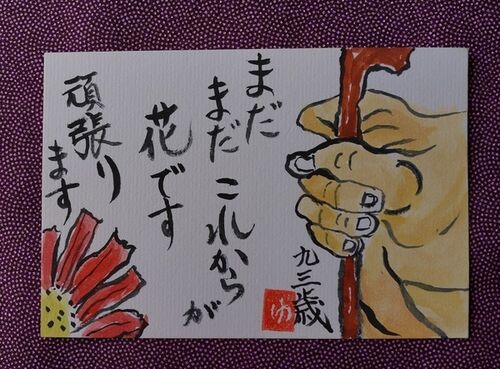 まだ
まだこれからが
花です
頑張り
ます
九三歳
ゆ